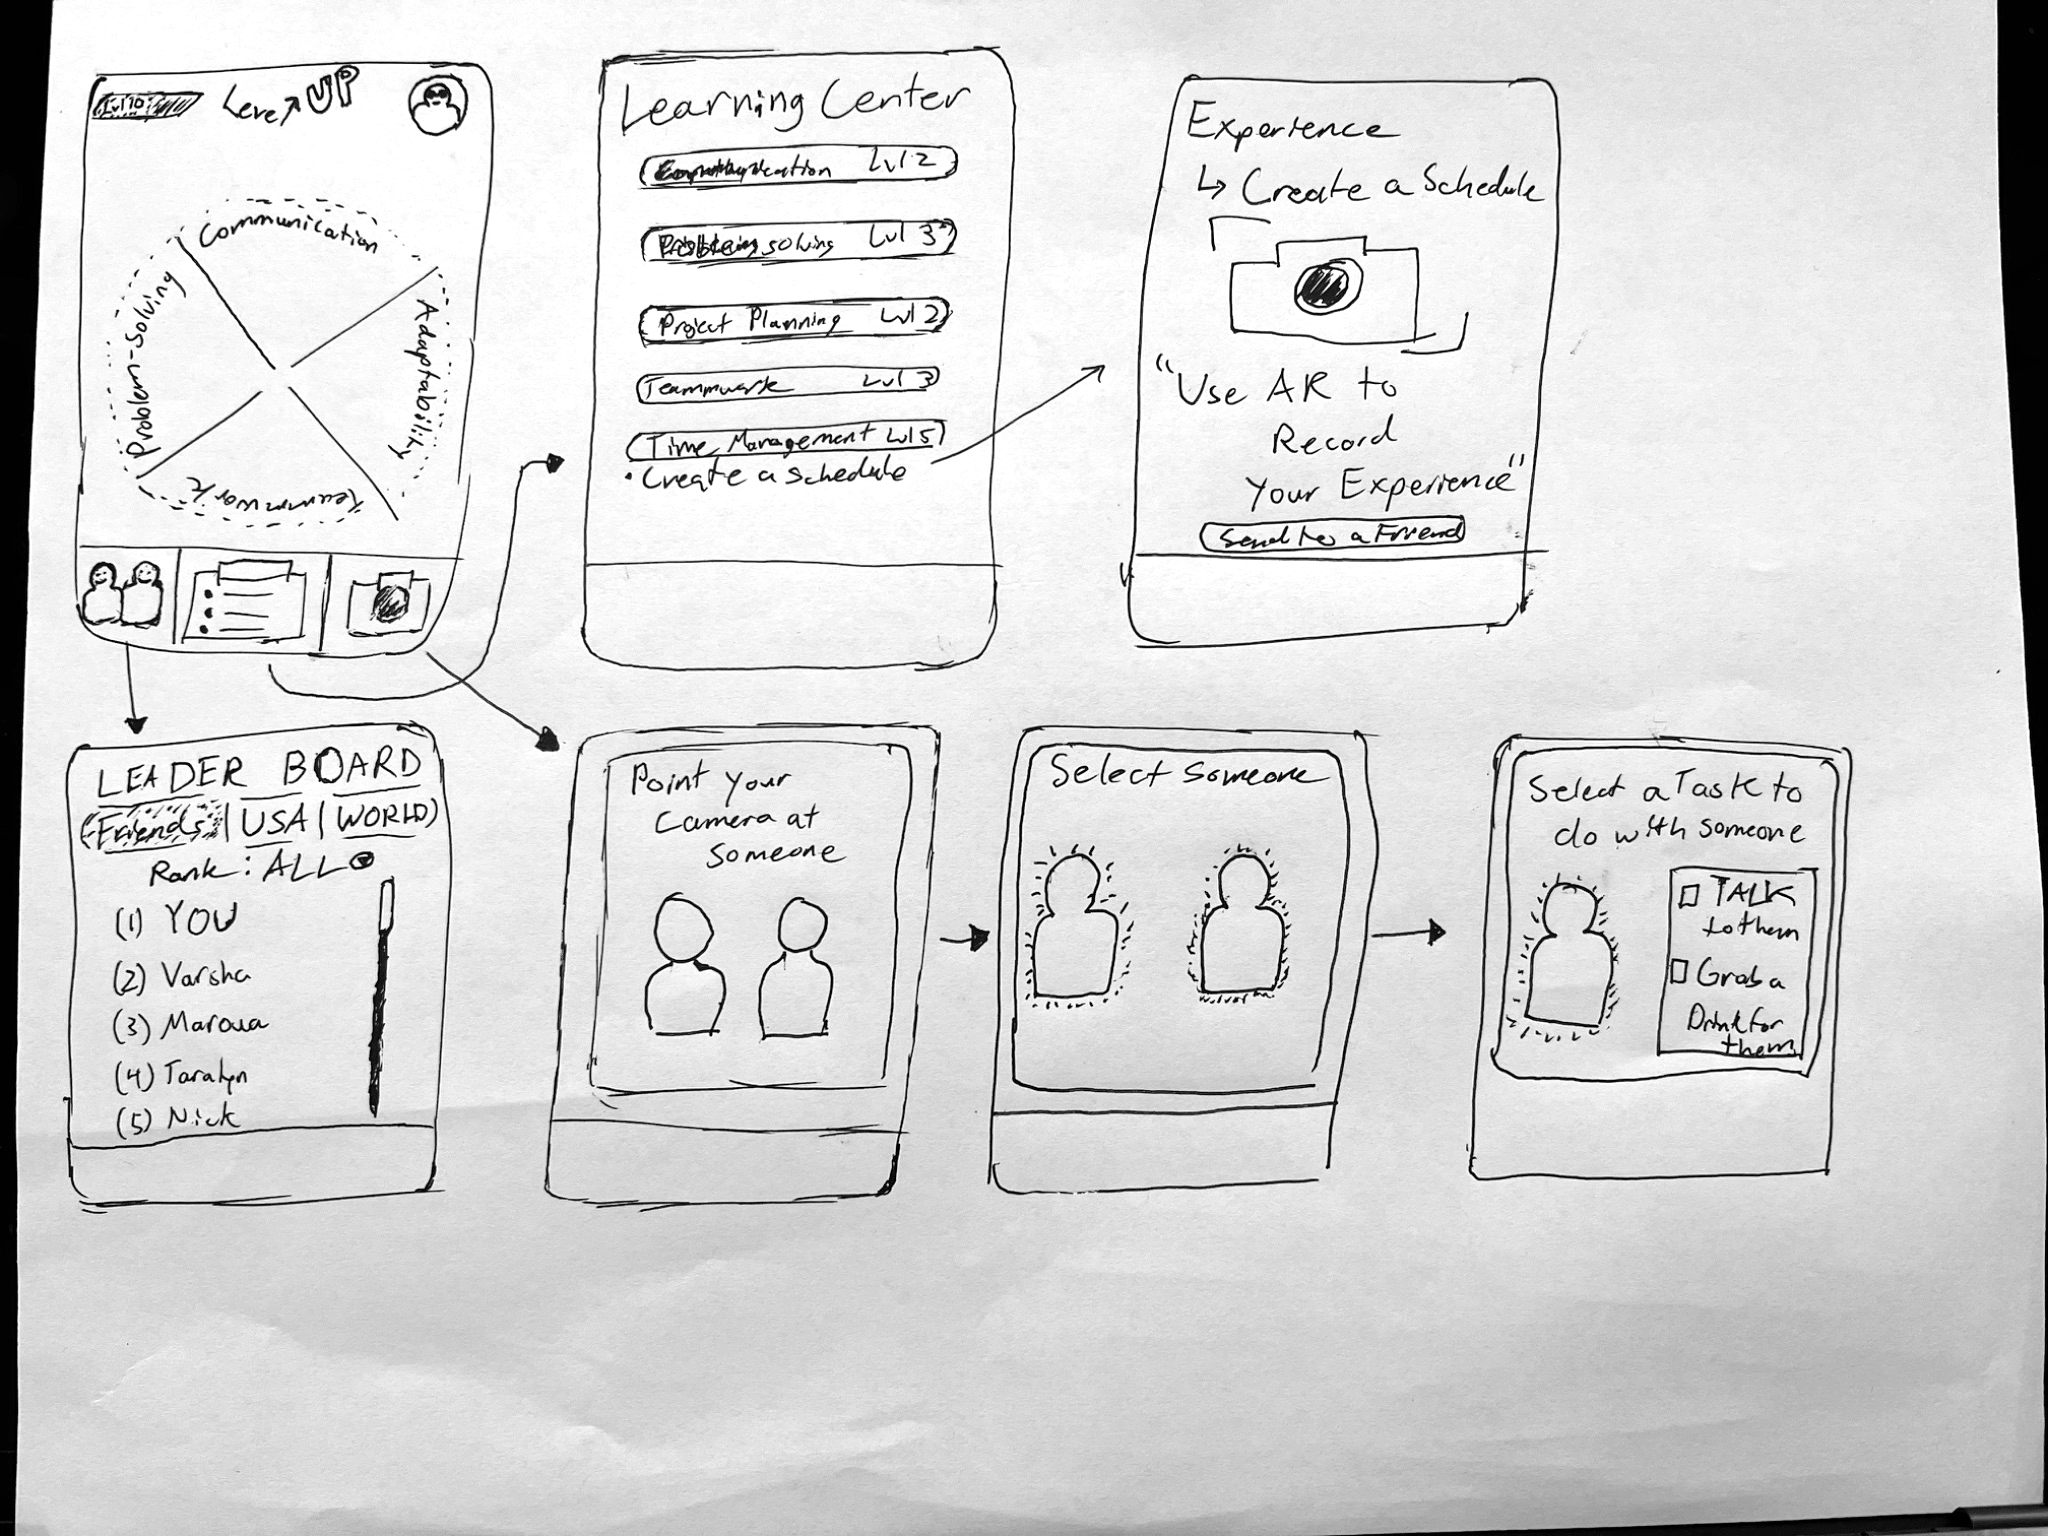 Lvl 10
Level UP
Communication
Adaptability
Teammwork
Problem-Solving
Learning Center
Communication Lvl 2
Problem solving Lvl 3
Project Planning Lvl 2
Teammwork Lvl 3
Time Management Lvl 5
• Create a schedule
Experience
↳ Create a Schedule
"Use AR to
Record
Your Experience"
Send to a Friend
LEADER BOARD
Friends | USA | WORLD
Rank: ALL
(1) YOU
(2) Varsha
(3) Maroua
(4) Taralyn
(5) Nick
Point your
Camera at
Someone
Select Someone
Select a Task to
do with someone
TALK
to them
Grab a
Drink for
them